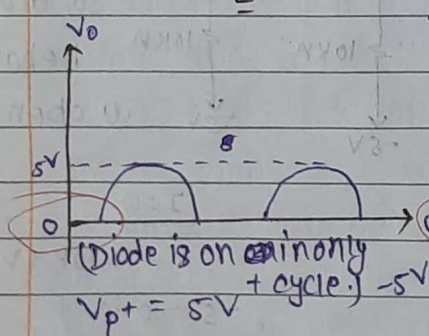 Vo
5V
0
(Diode is on in only
+ cycle.) -5V
Vp+ = 5V